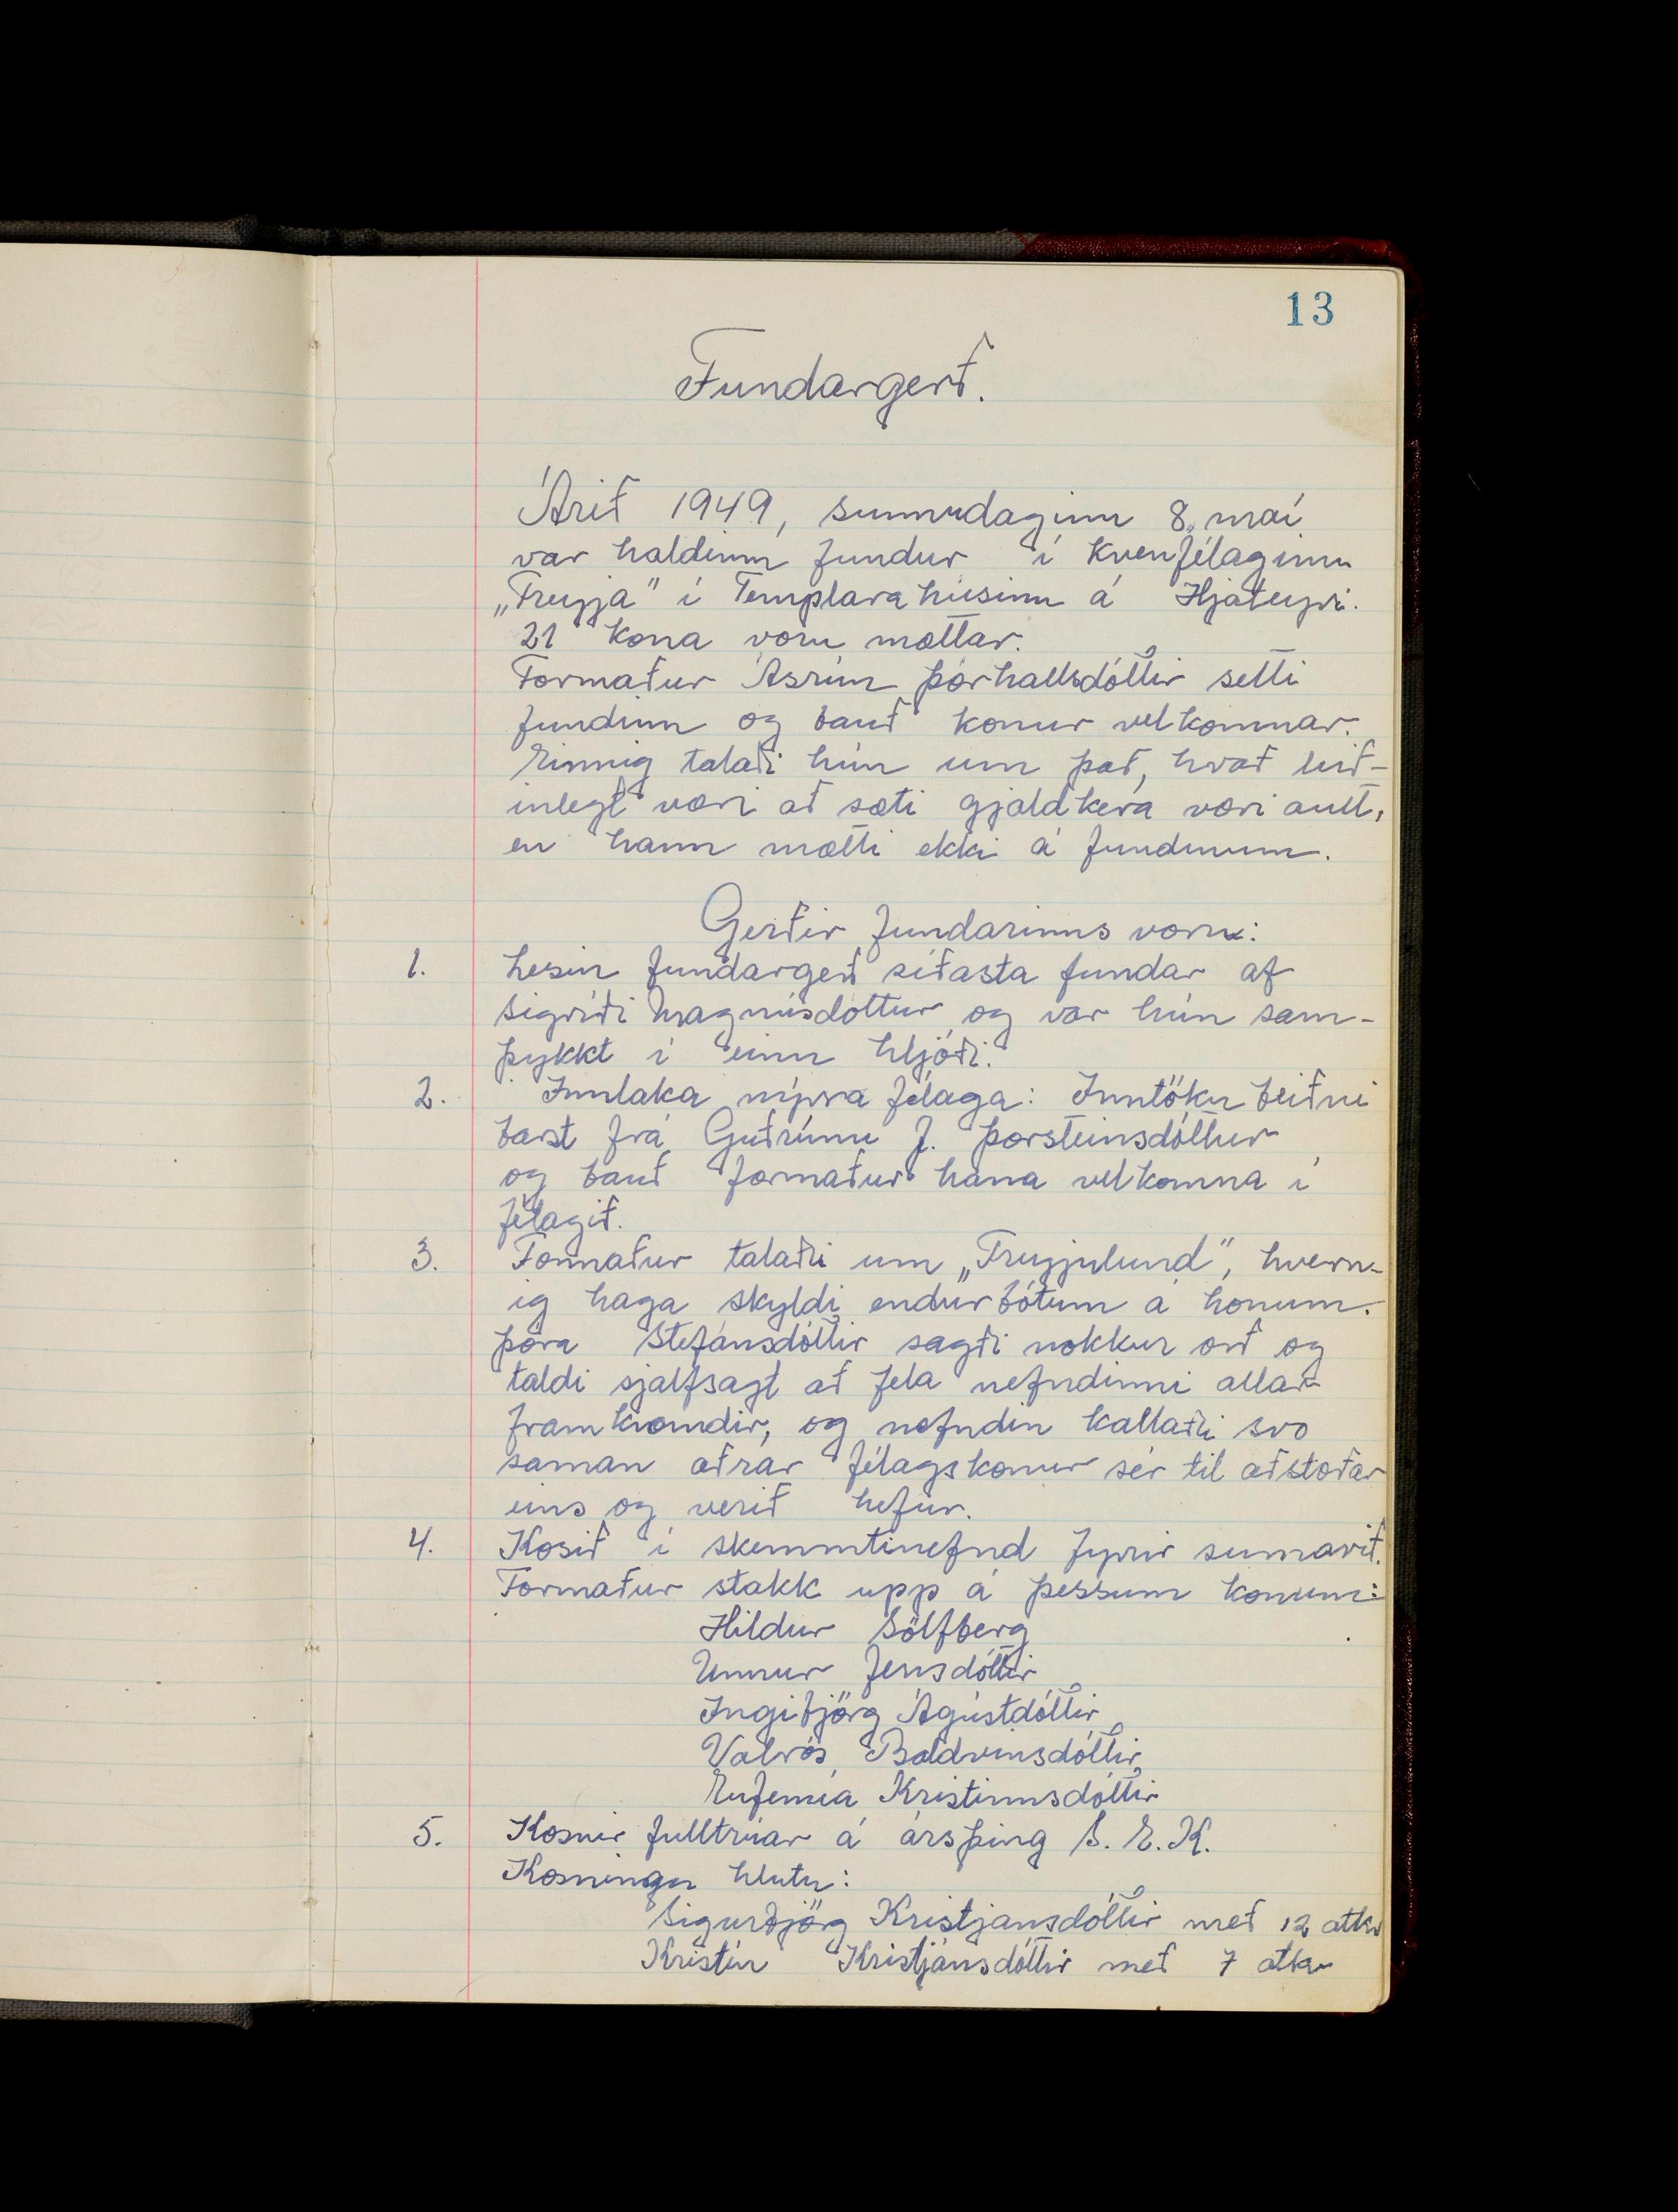 13
Fundargerð.
Árið 1949, sunnudaginn 8. maí
var haldinn fundur í kvenfélaginu
„Freyja" í Templarahúsinu á Hjateyri.
21 kona voru mættar.
Formaður Ásrún Þórhallsdóttir setti
fundinn og bauð konur velkomnar.
Einnig talaði hún um það, hvað leið-
inlegt væri að sæti gjaldkera væri autt,
en hann mætti ekki á fundinum.
Gerðir fundarinns voru:
1. Lesin fundargerð síðasta fundar af
Sigríði Magnúsdóttur og var hún sam-
þykkt í einu hljóði.
2. Inntaka nýrra félaga: Inntöku beiðni
barst frá Guðrúnu J. Þorsteinsdóttur
og bauð formaður hana velkomna í
félagið.
3. Formaður talaði um „Freyjulund", hvern-
ig haga skyldi endurbótum á honum.
Þóra Stefánsdóttir sagði nokkur orð og
taldi sjálfsagt að fela nefndinni allar
framkvæmdir, og nefndin kallaði svo
saman aðrar félagskonur sér til aðstoðar
eins og verið hefur.
4. Kosið í skemmtinefnd fyrir sumarið.
Formaður stakk upp á þessum konum:
Hildur Sólfberg
Unnur Jensdóttir
Ingibjörg Ágústdóttir
Valrós Baldvinsdóttir
Eufemia Kristinnsdóttir
5. Kosnir fulltrúar á ársþing S. E. K.
Kosningu hlutu:
Sigurbjörg Kristjánsdóttir með 12 atkv
Kristín Kristjánsdóttir með 7 atkv